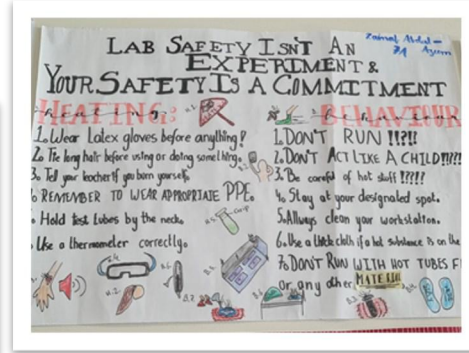 Zainab Abdul-
7A Azum
LAB SAFETY ISN'T AN
EXPERIMENT &
YOUR SAFETY IS A COMMITMENT
HEATING:
1. Wear Latex gloves before anything!
2. Tie long hair before using or doing something.
3. Tell your teacher if you burn yourself.
REMEMBER TO WEAR APPROPRIATE PPE.
Hold test tubes by the neck.
Use a thermometer correctly.
BEHAVIOUR
1. DON'T RUN !!?!!
2. DON'T ACT LIKE A CHILD!!!!!
3. Be careful of hot stuff !!!!!
4. Stay at your designated spot.
5. Always clean your workstation.
6. Use a cloth if a hot substance is on the
7. DON'T RUN WITH HOT TUBES F
or any other MATERIAL